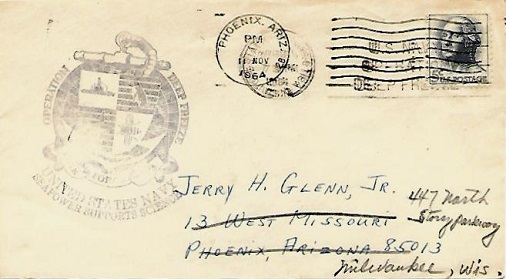 OPERATION DEEP FREEZE
UNITED STATES NAVY
SEAPOWER SUPPORTS SCIENCE
PHOENIX, ARIZ.
PM
11 NOV
1964
U.S. NAVY
DEEP FREEZE
5c U.S. POSTAGE
JERRY H. GLENN, JR.
13 WEST MISSOURI
PHOENIX, ARIZONA 85013
447 North
Story parkway
Milwaukee, Wis.